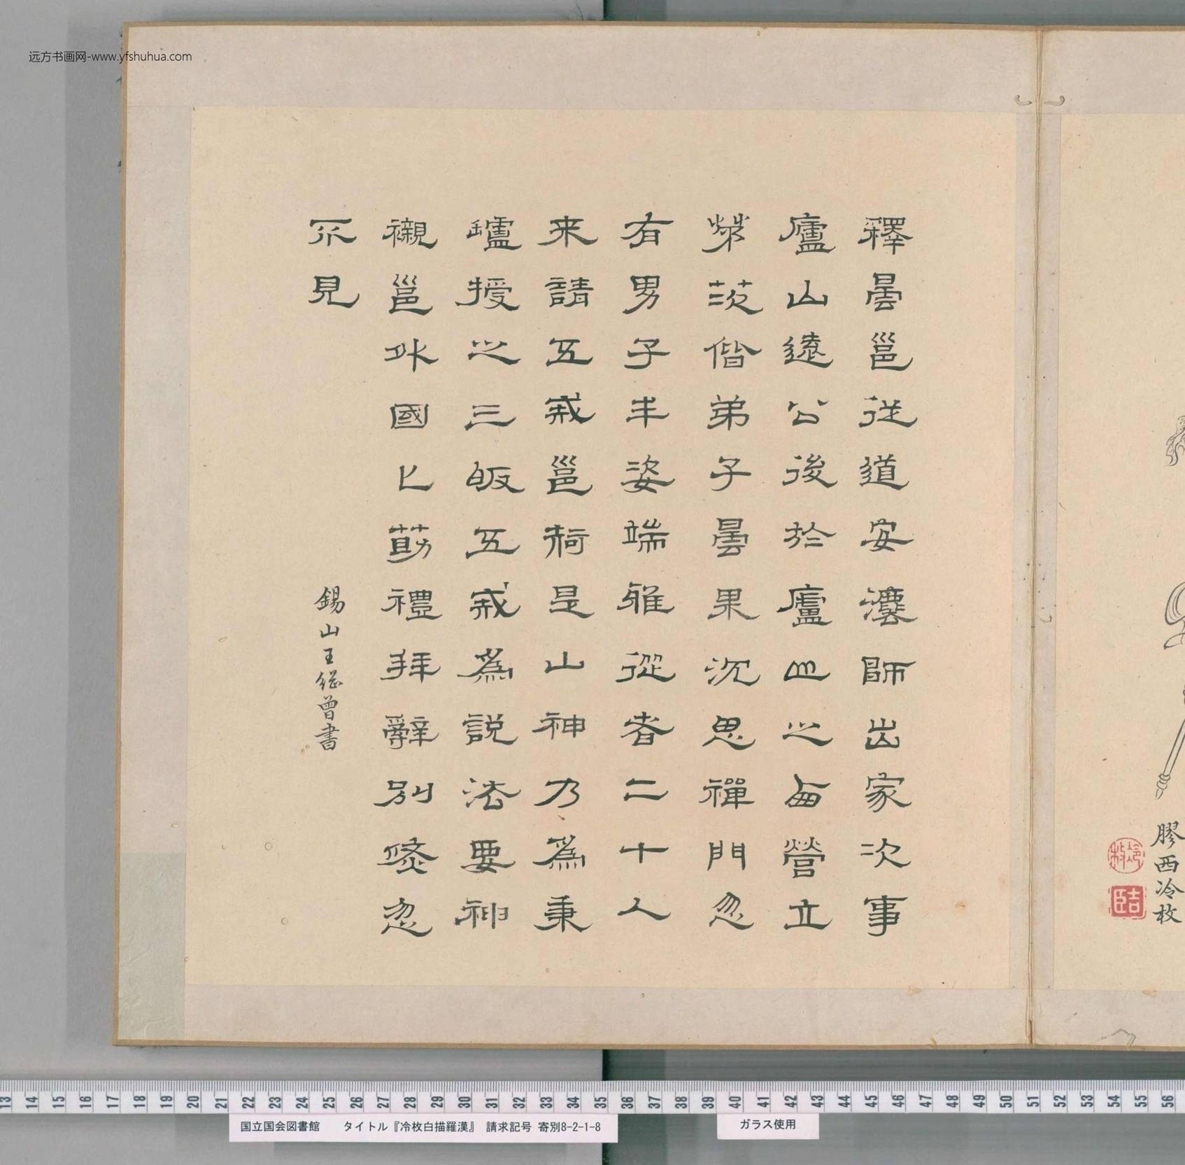 远方书画网-www.yfshuhua.com
釋曇邕從道安灋師出家次事
廬山遠公後於廬山之西營立
茅茨偕弟子曇果沉思禪門忽
有男子丰姿端雅從者二十人
来請五戒邕揣是山神乃為秉
爐授之三皈五戒為說法要神
襯邕外國匕莇禮拜辭別倐忽
不見
錫山王繩曾書
膠西冷枚
冷枚
臣吉
13 14 15 16 17 18 19 20 21 22 23 24 25 26 27 28 29 30 31 32 33 34 35 36 37 38 39 40 41 42 43 44 45 46 47 48 49 50 51 52 53 54 55 56
国立国会図書館 タイトル『冷枚白描羅漢』 請求記号 寄別8-2-1-8
ガラス使用